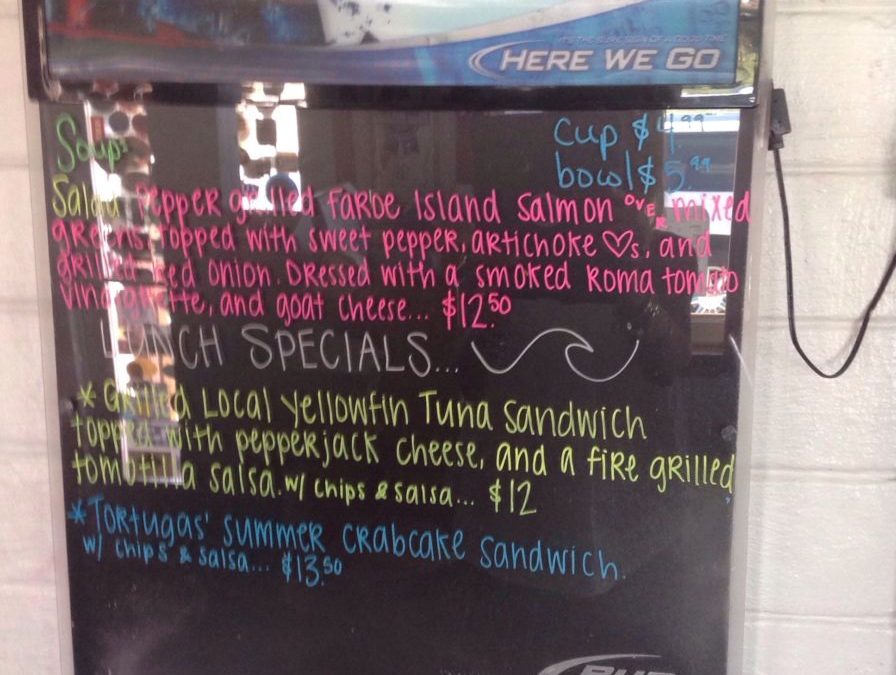 HERE WE GO
Soup: Cup $4.99
bowl $5.99
Salad: Pepper grilled Faroe Island Salmon over mixed
greens, topped with sweet pepper, artichoke ♡s, and
grilled red onion. Dressed with a smoked Roma tomato
vinaigrette, and goat cheese... $12.50
LUNCH SPECIALS...
* Grilled Local Yellowfin Tuna Sandwich
topped with pepperjack cheese, and a fire grilled
tomatilla salsa. w/ chips & salsa... $12
* Tortugas' summer crabcake sandwich.
w/ chips & salsa... $13.50
BUD